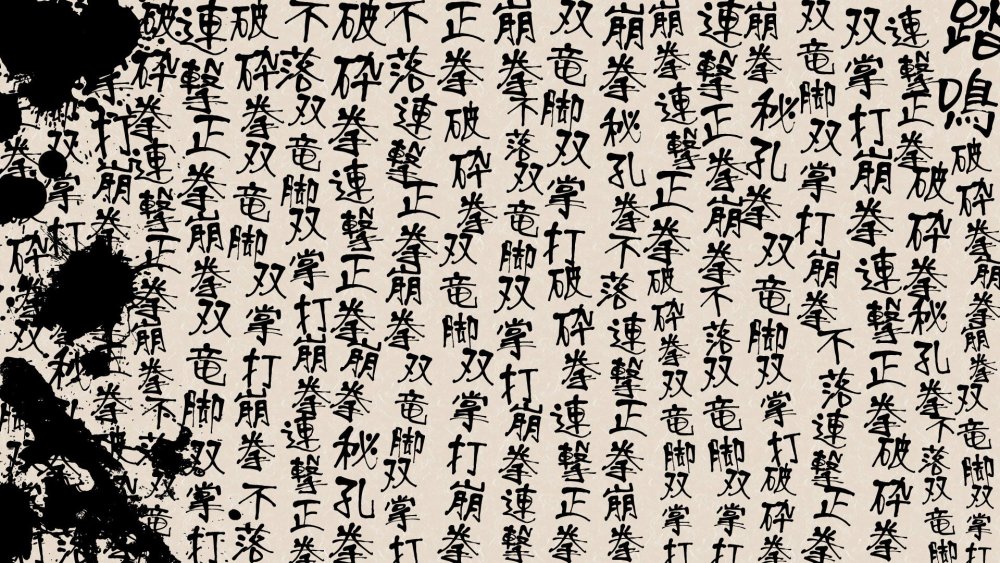 踏鳴破砕拳崩拳崩拳双竜脚双掌打
連撃正拳破砕拳秘孔拳不落双竜脚
双掌打崩拳連撃正拳破砕拳
双竜脚双掌打崩拳不落連撃正拳
崩拳秘孔拳双竜脚双掌打破砕拳
連撃正拳崩拳不落双竜脚双掌打
崩拳連撃正拳破砕拳双竜脚双掌打
崩拳秘孔拳不落連撃正拳崩拳
双竜脚双掌打破砕拳連撃正拳
崩拳不落双竜脚双掌打崩拳連撃
正拳破砕拳双竜脚双掌打崩拳
不落連撃正拳崩拳双竜脚双掌打
破砕拳連撃正拳崩拳秘孔拳
不落双竜脚双掌打崩拳連撃正拳
破砕拳双竜脚双掌打崩拳不落
連撃正拳崩拳双竜脚双掌打
破砕拳連撃正拳崩拳不落竜
掌打崩拳拳破
双掌打秘
拳砕拳双